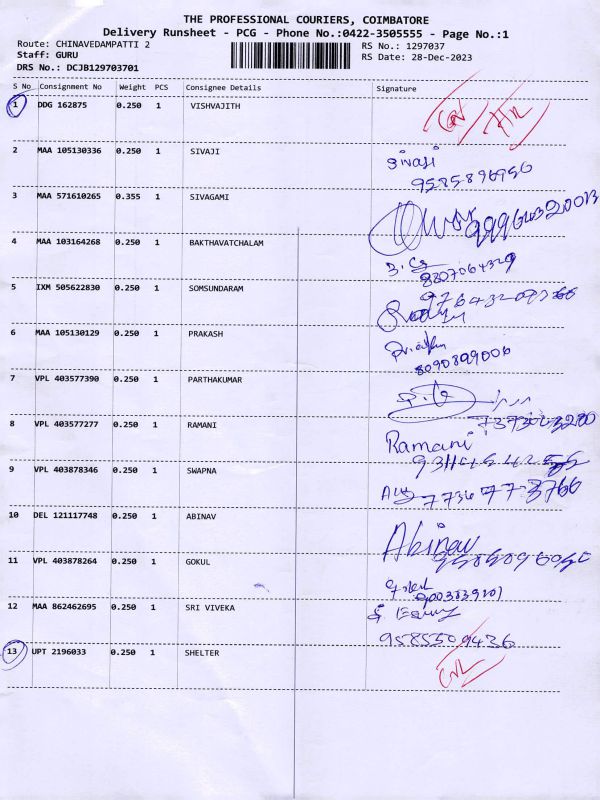 THE PROFESSIONAL COURIERS, COIMBATORE
Delivery Runsheet - PCG - Phone No.:0422-3505555 - Page No.:1
Route: CHINAVEDAMPATTI 2 RS No.: 1297037
Staff: GURU RS Date: 28-Dec-2023
DRS No.: DCJB129703701
S No Consignment No Weight PCS Consignee Details Signature
1 DDG 162875 0.250 1 VISHVAJITH
2 MAA 105130336 0.250 1 SIVAJI Sivaji
9585896950
3 MAA 571610265 0.355 1 SIVAGAMI
4 MAA 103164268 0.250 1 BAKTHAVATCHALAM
8807064329
5 IXM 505622830 0.250 1 SOMSUNDARAM
6 MAA 105130129 0.250 1 PRAKASH
8090899006
7 VPL 403577390 0.250 1 PARTHAKUMAR
8 VPL 403577277 0.250 1 RAMANI Ramani
9 VPL 403878346 0.250 1 SWAPNA
7736773766
10 DEL 121117748 0.250 1 ABINAV Abinav
11 VPL 403878264 0.250 1 GOKUL Gokul
12 MAA 862462695 0.250 1 SRI VIVEKA
9585509436
13 UPT 2196033 0.250 1 SHELTER